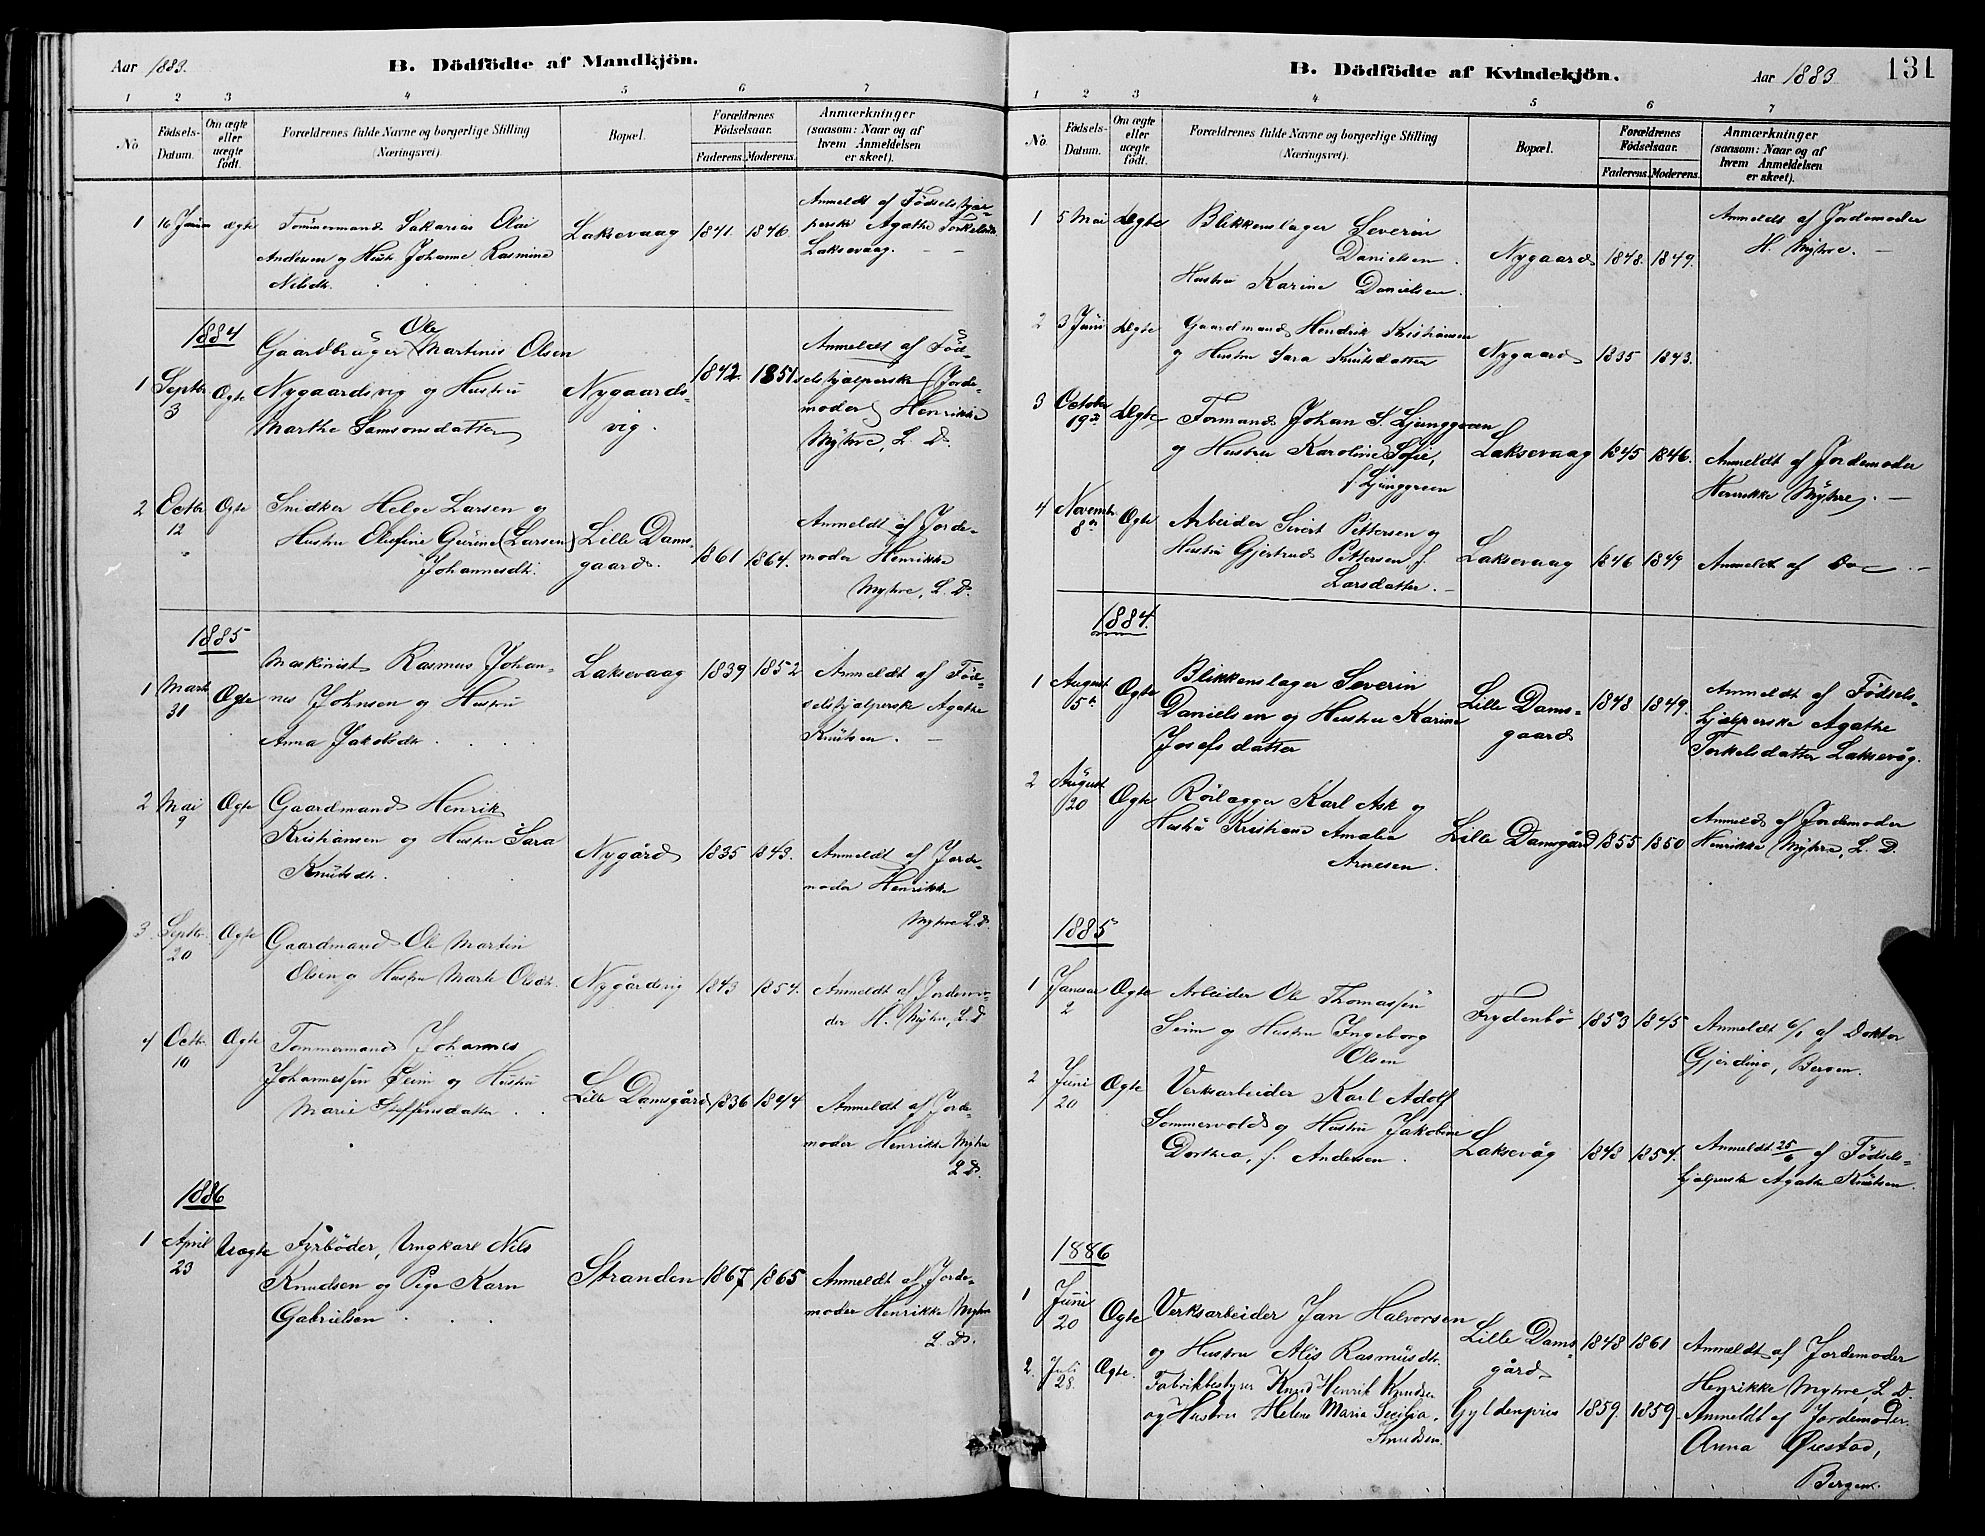 Aar 1883.
B. Dödfödte af Mandkjön.
1 2 3 4 5 6 7
No
Födsels-Datum.
Om ægte eller uægte født.
Forældrenes fulde Navne og borgerlige Stilling (Næringsvei).
Bopæl.
Forældrenes Födselsaar.
Faderens. Moderens.
Anmærkninger (saasom: Naar og af hvem Anmeldelsen er skeet).
1 16 Ægte Tømmermand Sakarias Olai Laksevaag 1841. 1846 Anmeldt af Fødselshjæl-
Andersen og Hustr Johanne Rasmine perske Agathe Torkelsdtr.
Nilsdtr. Laksevaag. —
1884
1 Septbr 3 Ægte Gaardbruger Ole Martinus Olsen Nygaards- 1842. 1851 Anmeldt af Fød-
Nygaardsvig og Hustru vig. selshjælperske (Jorde-
Marthe Samsonsdatter moder) Henrikke
Myhre, L. D.
2 Octbr. 12 Ægte Snidker Helge Larsen og Lille Dams- 1861 1864. Anmeldt af Jorde-
Hustru Olufine Gurine (Larsen) gaard. moder Henrikke
Johannesdtr. Myhre, L. D.
1885
1 Marts 31 Ægte Maskinist Rasmus Johan- Laksevaag 1839 1852 Anmeldt af Fød-
nes Johnsen og Hustru selshjælperske Agathe
Anna Jakobsdtr. Knutsen. —
2 Mai 9 Ægte Gaardmand Henrik
Kristiansen og Hustru Sara Nygård 1835 1843. Anmeldt af Jorde-
Knutsdtr. moder Henrikke
Myhre L. D.
3. Septbr. 20 Ægte Gaardmand Ole Martin
Olsen og Hustru Marte Olsdtr. Nygårdsvig 1843 1854. Anmeldt af Jordemo-
der H. Myhre, L. D
4 Octbr. 10 Ægte Tømmermand Johannes
Johannessen Seim og Hustru Lille Damsgård 1836 1844 Anmeldt af Jorde-
Marie Steffensdatter. moder Henrikke Myhre
L. D.
1886
1 April 23 Uægte Fyrbøder, Ungkarl Nils
Knudsen og Pige Karn Stranden 1867 1865 Anmeldt af Jorde-
Gabrielsen moder Henrikke Myhre
L. D.
B. Dödfödte af Kvindekjön.
Aar 1883 131
1 2 3 4 5 6 7
No.
Födsels-Datum.
Om ægte eller uægte födt.
Forældrenes fulde Navne og borgerlige Stilling (Næringsvei).
Bopæl.
Forældrenes Födselsaar.
Faderens. Moderens.
Anmærkninger (saasom: Naar og af hvem Anmeldelsen er skeet).
1 5 Mai Ægte Blikkenslager Severin Anmeldt af Jordemoder
Danielsen. Nygaard 1848. 1849. H. Myhre. —
Hustru Karine Danielsen.
2 3 Juni Ægte Gaardmand Hendrik Kristiansen
og Hustru Sara Knutsdatter Nygaard 1835 1843.
3 October 19de Ægte Formand Johan S. Ljunggreen
og Hustru Karoline Sofie, Laksevaag 1845 1846. Anmeldt af Jordemoder
f. Ljunggreen Henrikke Myhre. —
4 Novembr. 8de Ægte Arbeider Sivert Pettersen og
Hustru Gjertrud Pettersen f. Laksevaag 1846 1849 Anmeldt af Do —
Larsdatter. —
1884.
1 August 5te Ægte Blikkenslager Severin Lille Dams- 1848 1849. Anmeldt af Fødsels-
Danielsen og Hustru Karine gaard hjælperske Agathe
Josefsdatter Torkelsdatter Laksevåg.
2 August 20 Ægte Rørlægger Karl Ask og
Hustru Kristiane Amalia Lille Damsgård 1855 1850 Anmeldt af Jordemoder
Arnesen. Henrikke Myhre, L. D.
1885
1 Januar 2 Ægte Arbeider Ole Thomassen
Seim og Hustru Ingeborg Frydenbø 1853 1845 Anmeldt 6/1 af Doktor
Olsen Gjerding, Bergen.
2 Juni 20 Ægte Verksarbeider Karl Adolf
Sommervold og Hustru Jakobine Laksevåg 1848 1854. Anmeldt 25/6 af Fødsels-
Dorthea, f. Andersen. hjælperske Agathe Knutsen.
1886
1 Juni 20 Ægte Verksarbeider Jan Halvorsen Lille Dams- 1848 1861 Anmeldt af Jordemoder
og Hustru Alis Rasmusdtr. gård Henrikke Myhre, L. D.
2. Juli 28. Ægte. Fabrikbestyrer Knud Henrik Knudsen
og Hustru Helene Maria Secilia. Gyldenpris 1859. 1859 Anmeldt af Jordemoder.
Knudsen. Anna Ørestad,
Bergen.